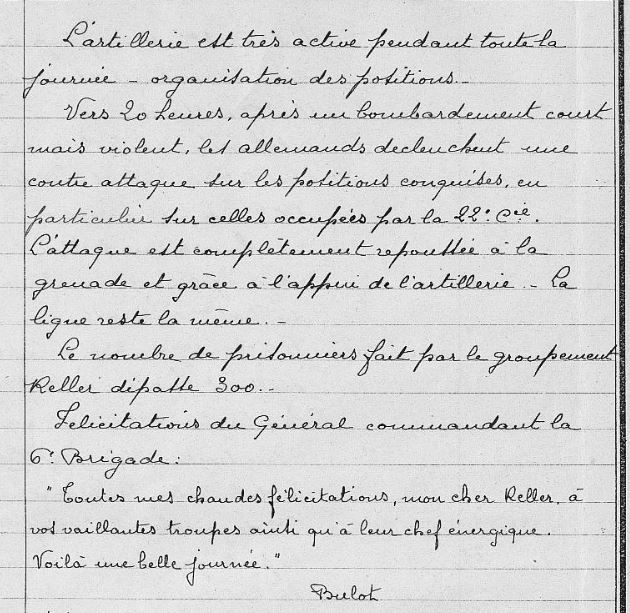 L'artillerie est très active pendant toute la
journée - organisation des positions.-
Vers 20 heures, après un bombardement court
mais violent, les allemands declenchent une
contre attaque sur les positions conquises, en
particulier sur celles occupées par la 22e Cie.
L'attaque est complètement repoussée à la
grenade et grâce à l'appui de l'artillerie.- La
ligne reste la même.-
Le nombre de prisonniers fait par le groupement
Keller dépasse 300.-
Felicitations du Général commandant la
6e Brigade:
"Toutes mes chaudes félicitations, mon cher Keller, à
vos vaillantes troupes ainsi qu'à leur chef énergique.
Voilà une belle journée."
Bulot